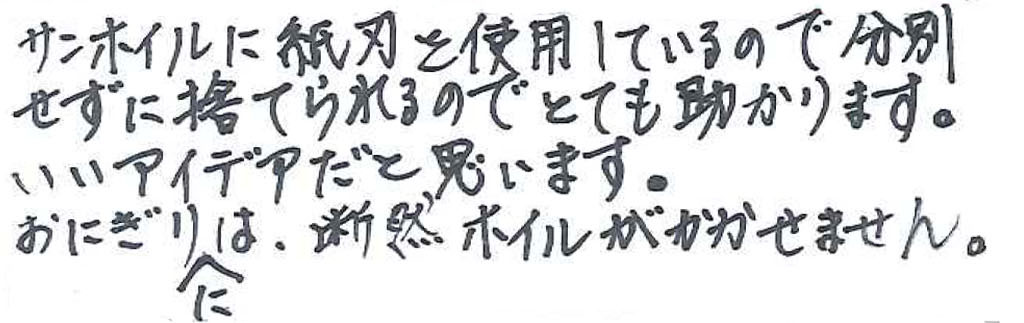 サンホイルに紙刃を使用しているので分別
せずに捨てられるのでとても助かります。
いいアイデアだと思います。
おにぎりには、断然ホイルがかかせません。